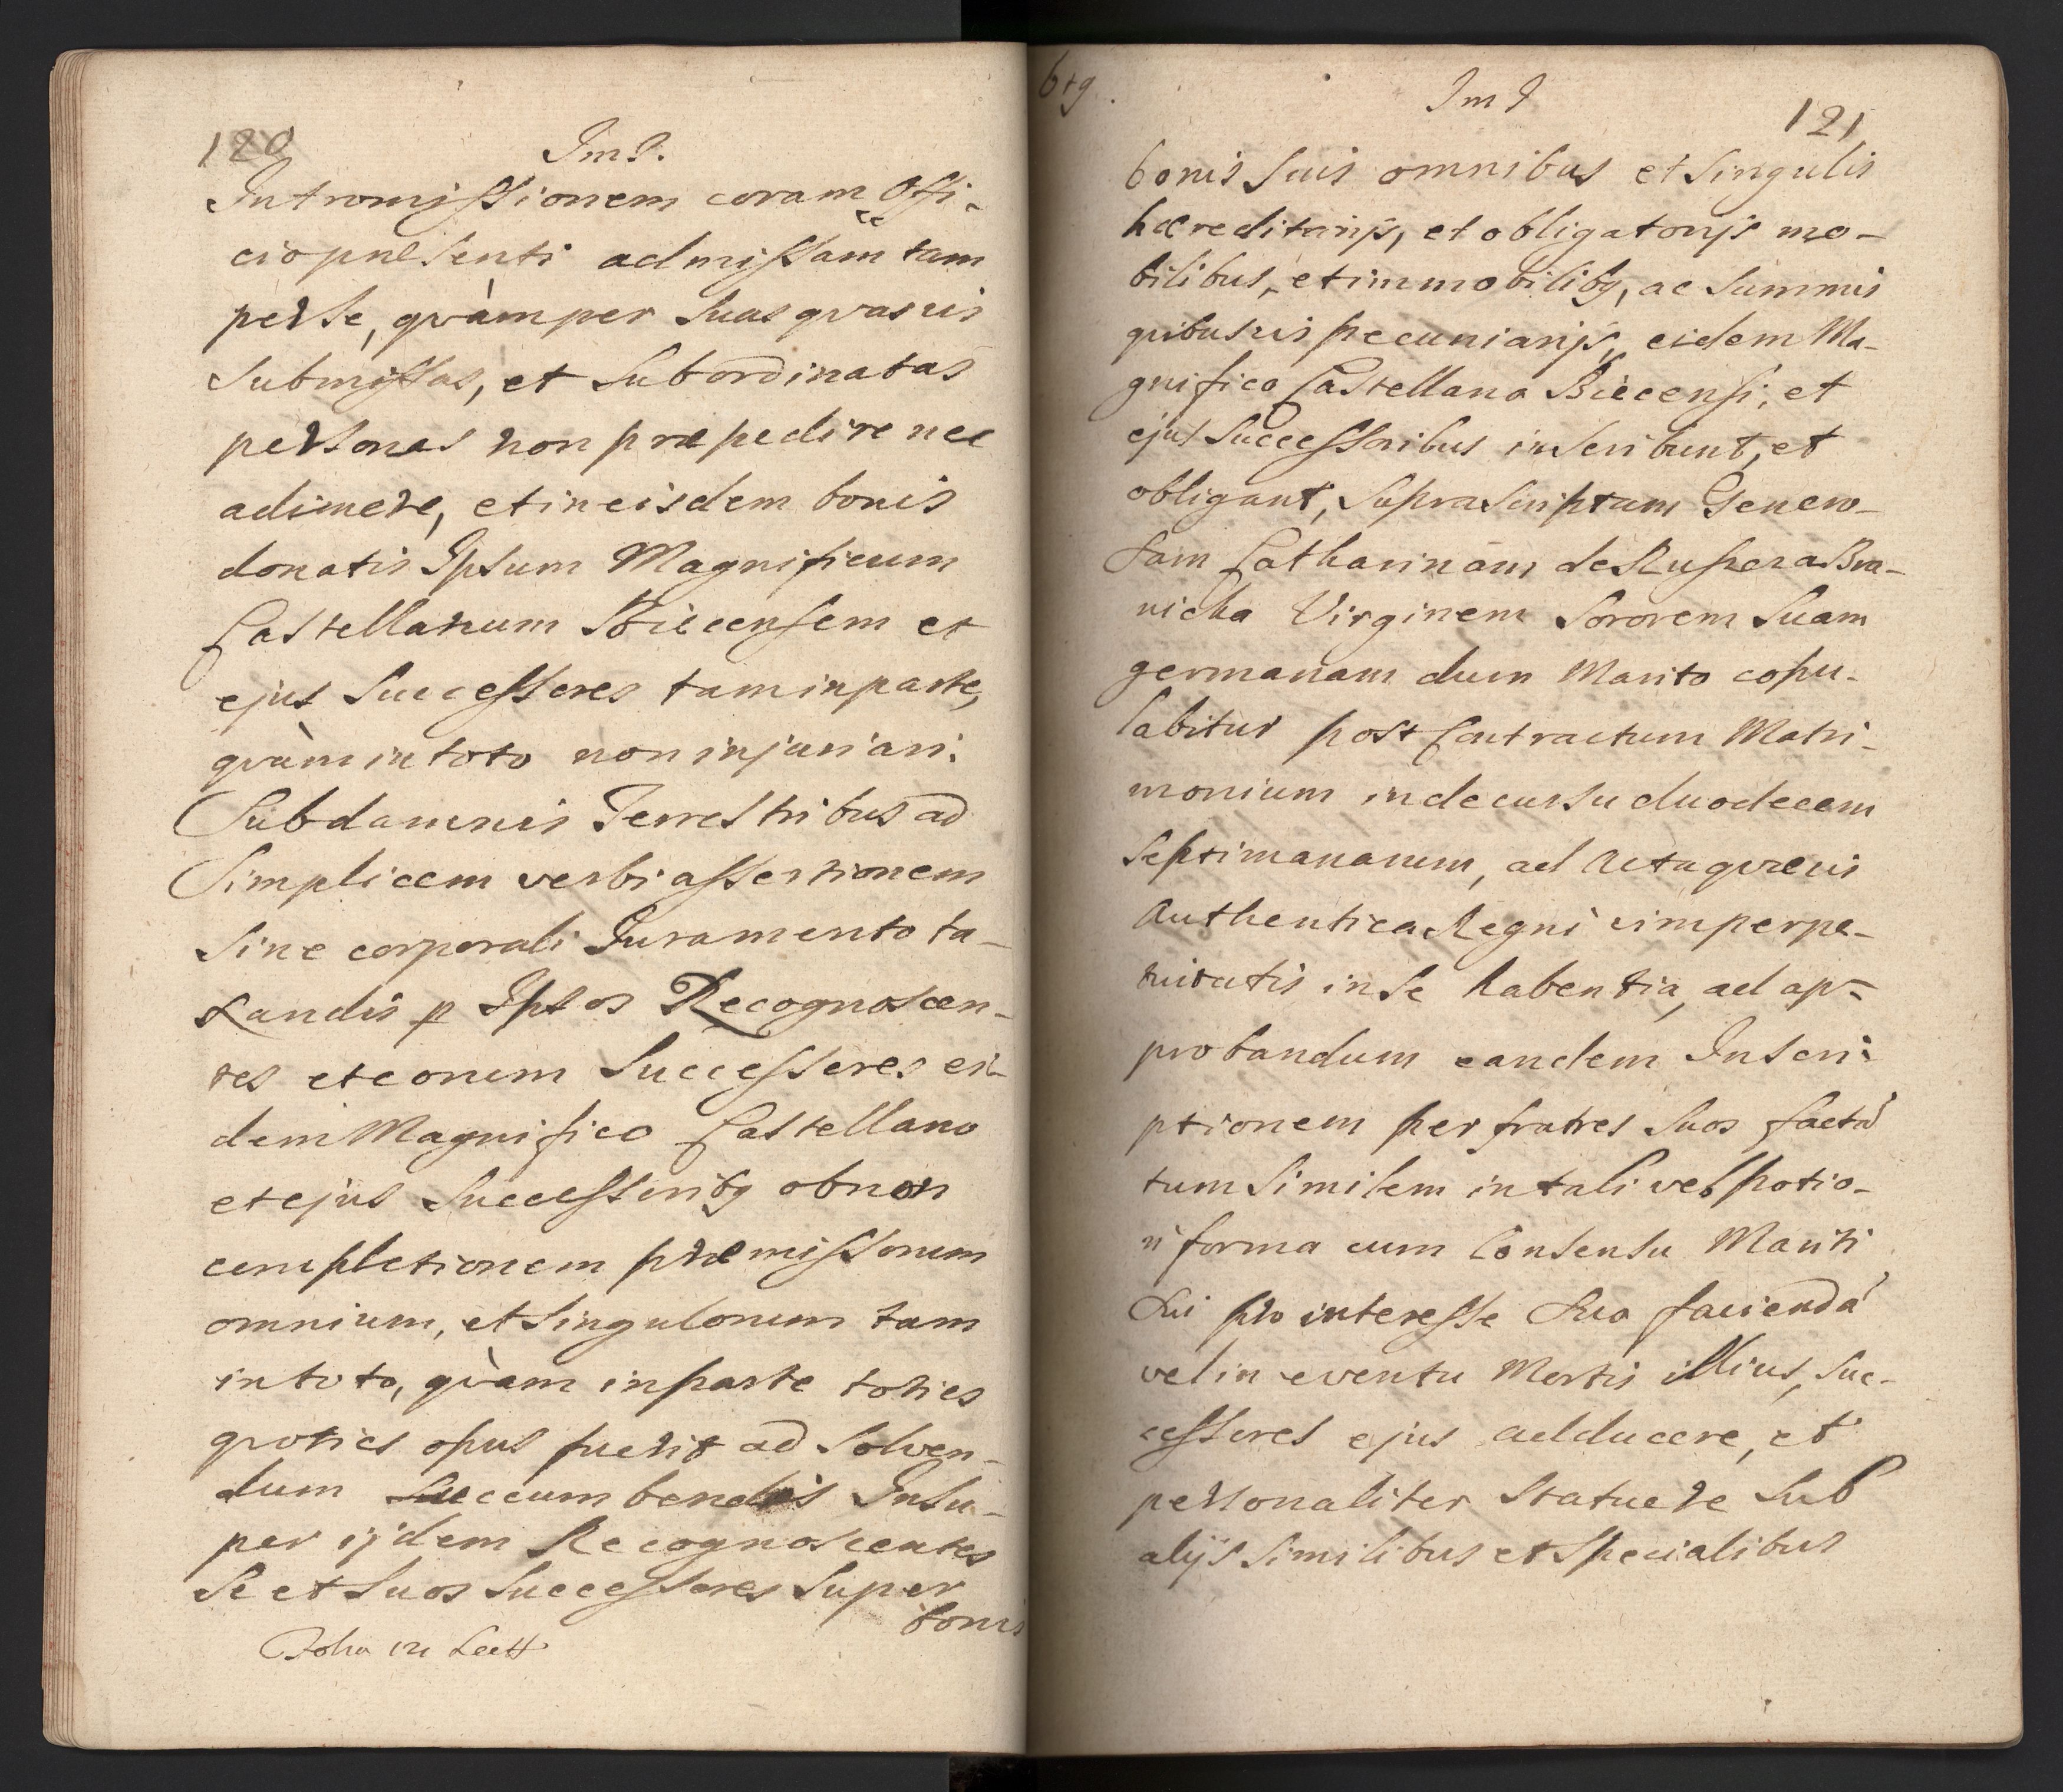 120 Im I.
Intromissionem coram Offi-
cio præsenti admissam tam
per Se, qvàm per Suas qvasvis
Submissas, et Subordinatas
personas non præpedire nec
adimere, et in eisdem bonis
donatis Ipsum Magnificum
Castellanum Biecensem et
ejus Successores tam in parte,
qvàm in toto non injuriari.
Sub damnis Terrestribus ad
Simplicem verbi assertionem
Sine corporali Juramento ta-
xandis p Ipsos Recognoscen-
tes et eorum Successores ei-
dem Magnifico Castellano
et ejus Successoribq ob non
completionem præmissorum
omnium, et Singulorum tam
in toto, qvàm in parte toties
qvoties opus fuerit ad Solven-
dum Succumbendis Insu-
per ijdem Recognoscentes
Se et Suos Successores Super
bonis
121
Im I
bonis Suis omnibus et Singulis
hæreditarijs, et obligatorijs mo-
bilibus, et immobilibq, ac Summis
qvibusvis pecuniarijs, eidem Ma-
gnifico Castellano Biecensi, et
ejus Successoribus inscribunt, et
obligant, Suprascriptam Genero-
sam Catharinam de Ruszcza Bra-
nicka Virginem Sororem Suam
germanam dum Marito copu-
labitur post Contractum Matri-
monium in decursu duodecem
Septimanarum, ad Acta qvævis
Authentica Regni vim perpe-
tuitatis in Se habentia, ad ap-
probandum eandem Inscri-
ptionem per fratres Suos factã
tum Similem in tali vel potio-
ri forma cum Consensu Mariti
Sui pro interesse Suo faciendã
vel in eventu Mortis illius, Suc-
cessores ejus adducere, et
personaliter Statuere Sub
alijs Similibus et Specialibus